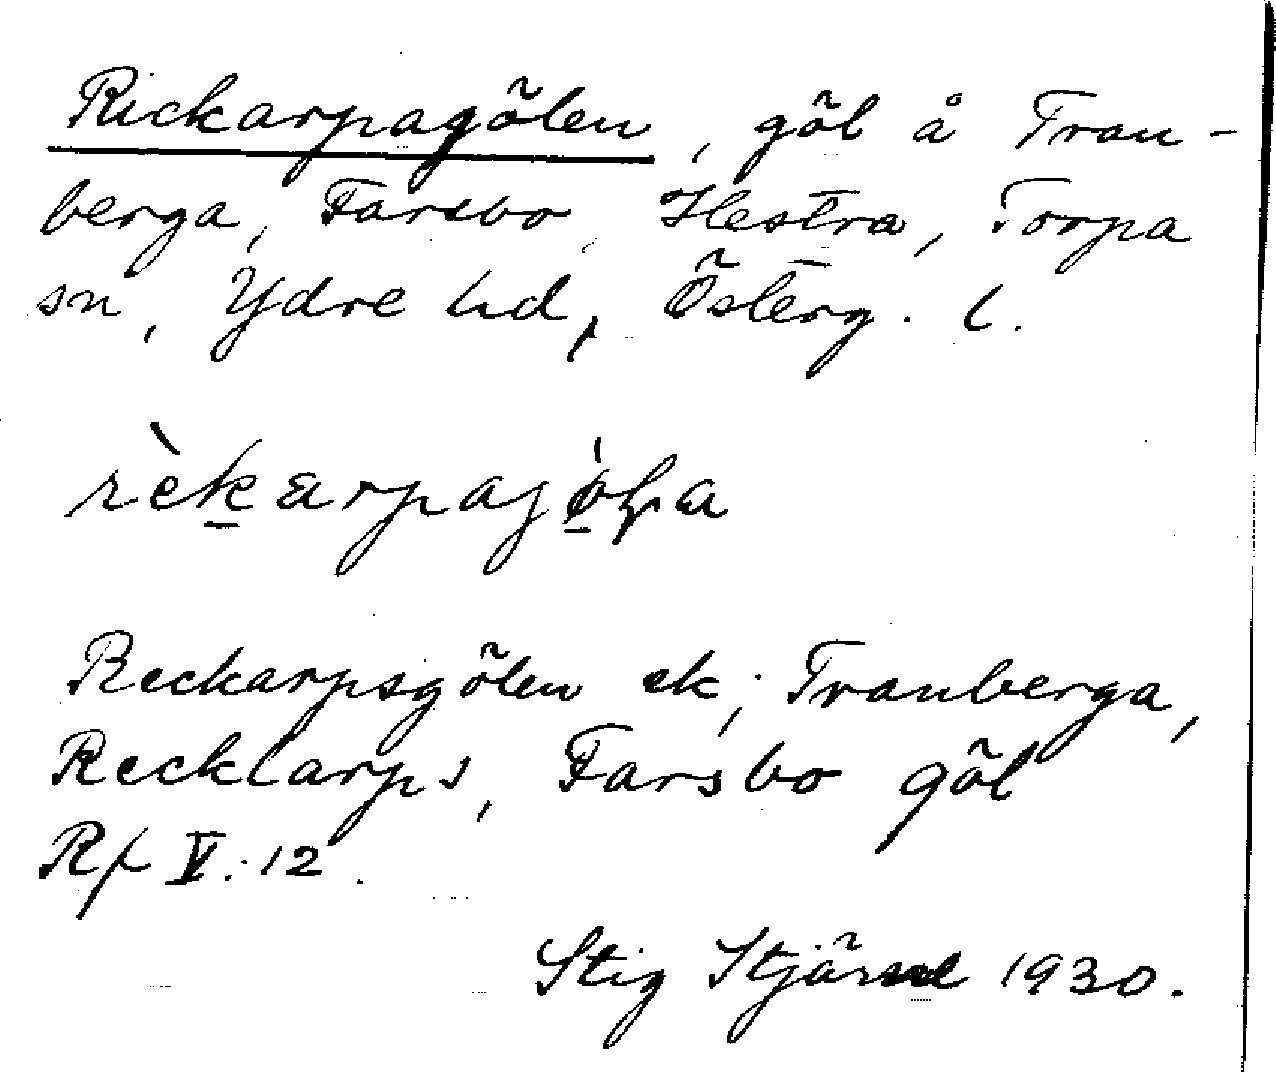 Rickarpagölen, göl å Tran-
berga, Farsbo, Hestra, Torpa
sn, Ydre hd, Österg. l.
rèkarpajö̀ḷa
Reckarpsgölen ek; Tranberga,
Recklarps, Farsbo göl
Rf V:12.
Stig Stjärne 1930.